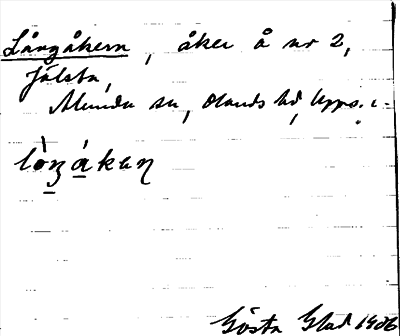 Långåkern, åker å nr 2,
Jälsta,
Alunda sn, Olands hd, Upps. l.
lòŋákaṇ
Gösta Glad 1906